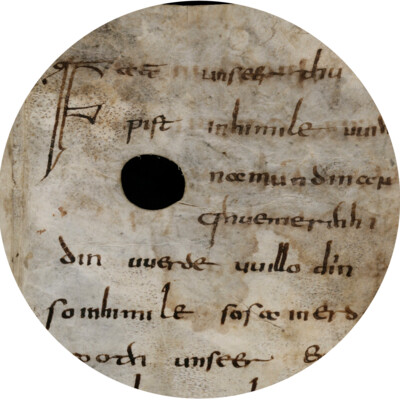 Fater unseer thu
pist inhimile uuih
namun dinan
qhueme rihhi
din uuerde uuillo diin
so inhimile sosa in erd
ooth unseer